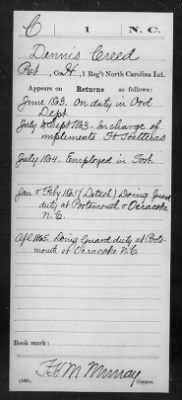 C 1 N.C.
Dennis Creed
Pvt, Co. H, 1 Reg't North Carolina Inf.
Appears on Returns as follows:
June 1863. On duty in Ord
Dept.
July & Sept 1863. In charge of
implements Ft Hatteras
July 1864. Employed in Fort
Jan & Feby 1865 (Detach) Doing Guard
duty at Portsmouth & Ocracoke
N.C.
Apl 1865. Doing Guard duty at Ports-
mouth & Ocracoke N.C
Book mark:
F.H.M. Murray
Copyist.